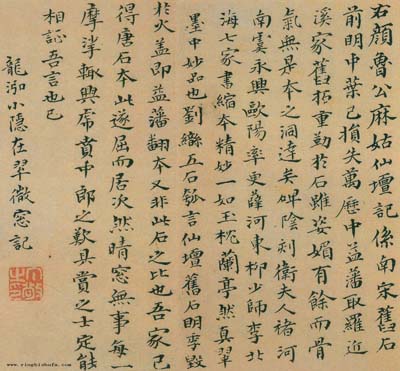 右顔魯公麻姑仙壇記係南宋舊石
前明中葉已損失萬歷中益藩取羅近
溪家舊拓重勒於石雖姿媚有餘而骨
氣無是本之洞達矣碑陰刻衛夫人褚河
南虞永興歐陽率更薛河東柳少師李北
海七家書縮本精妙一如玉枕蘭亭然真翠
墨中妙品也劉繼五石瓠言仙壇舊石明季毀
於火蓋即益藩翻本又非此石之比也吾家已
得唐石本此遂屈而居次然晴窓無事每一
摩挲輒興虎賁中郎之歎具賞之士定能
相証吾言也已
龍泖小隱在翠微窓記
www.yingbishufa.com